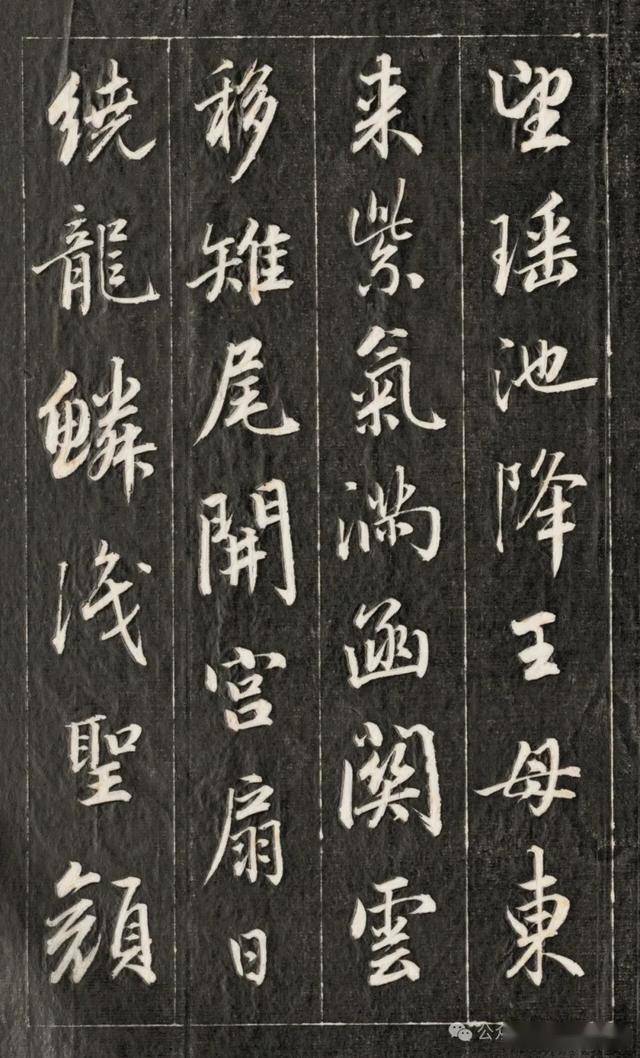 望瑶池降王母東
来紫氣滿函關雲
移雉尾開宮扇日
繞龍鱗識聖顔
公众